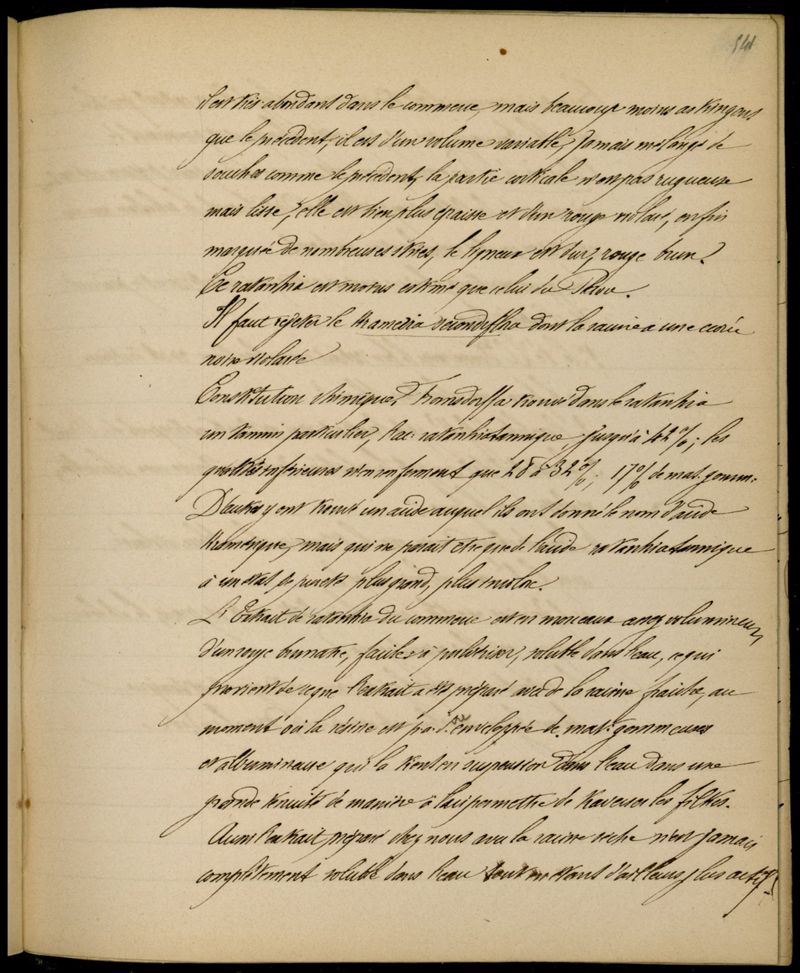 541
il est très abondant dans le commerce, mais beaucoup moins astringent
que le précédent, il est d'un volume variable, jamais mélangé de
souches comme le précédent, la partie corticale n'est pas rugueuse
mais lisse, elle est bien plus épaisse et d'un rouge violacé, enfin
marquée de nombreuses stries, le ligneux est dur, rouge brun.
Ce ratanhia est moins estimé que celui du Pérou.
Il faut rejeter le krameria secundiflora dont la racine a une écorce
noire violacée
Constitution chimique. Tromsdorffa trouvé dans le ratanhia
un tannin particulier, l'ac. ratanhiatannique, jusqu'à 42 %; les
qualités inférieures n'en renferment que 28 à 32 %; 17 % de mat. gomm.
D'autres y ont trouvé un acide auquel ils ont donné le nom d'acide
kramérique, mais qui ne parait etre que de l'acide ratanhiatannique
à un état de pureté plus grand, plus incolore.
L'Extrait de ratanhia du commerce est en morceaux assez volumineux,
d'un rouge brunatre, faciles à pulvériser, soluble dans l'eau, ce qui
provient de ce que l'extrait a été préparé avec de la racine fraîche, au
moment où la résine est enveloppée de mat. gommeuses
et albumineuse qui la tient en suspension dans l'eau dans une
grande ténuité de manière à lui permettre de traverser les filtres.
Aussi l'extrait préparé chez nous avec la racine sèche n'est jamais
complètement soluble dans l'eau tout en étant d'ailleurs plus actif.